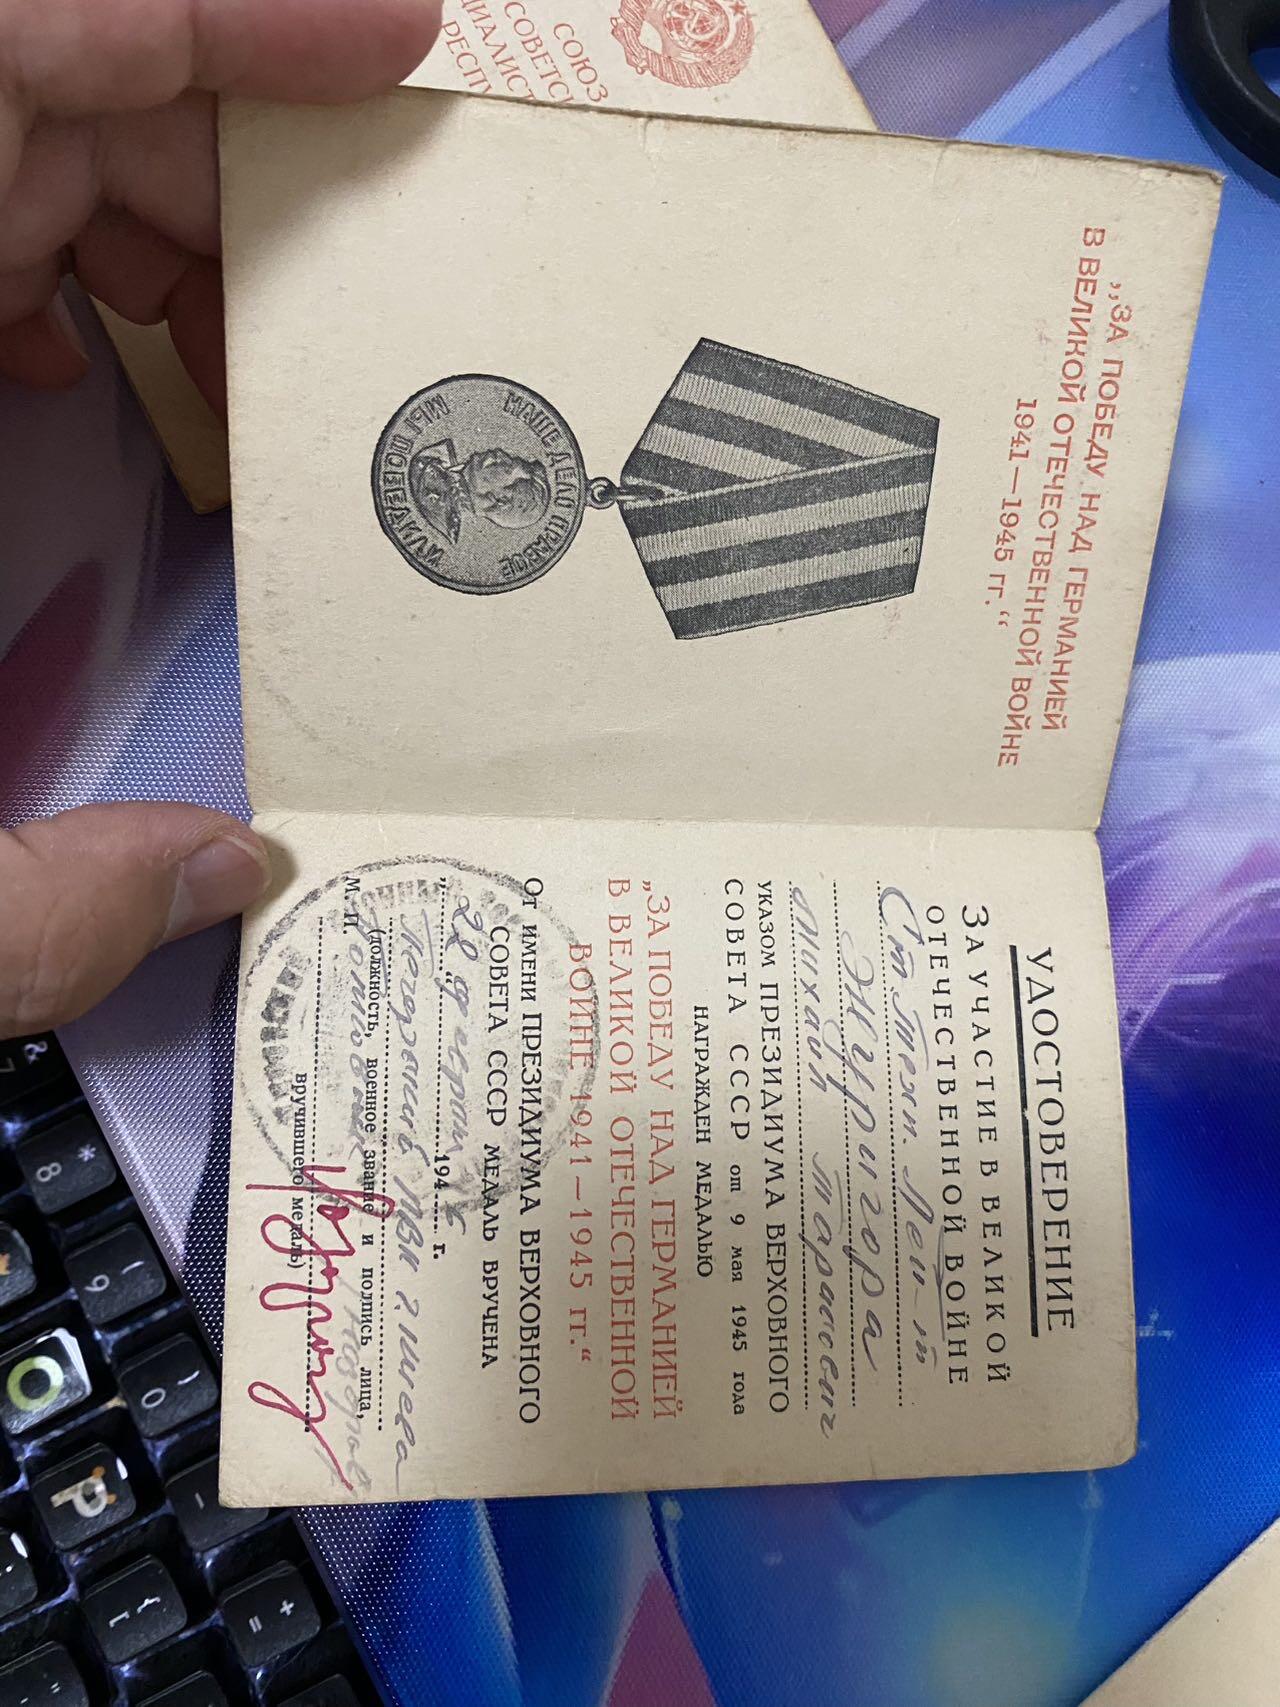 СОЮЗ
СОВЕТС
ЦИАЛИСТ
РЕСПУ
„ЗА ПОБЕДУ НАД ГЕРМАНИЕЙ
В ВЕЛИКОЙ ОТЕЧЕСТВЕННОЙ ВОЙНЕ
1941—1945 гг.“
НАШЕ ДЕЛО ПРАВОЕ
МЫ ПОБЕДИЛИ
УДОСТОВЕРЕНИЕ
ЗА УЧАСТИЕ В ВЕЛИКОЙ
ОТЕЧЕСТВЕННОЙ ВОЙНЕ
Ст. Техн. Лей-т
Журигора
Михаил Тарасович
УКАЗОМ ПРЕЗИДИУМА ВЕРХОВНОГО
СОВЕТА СССР от 9 мая 1945 года
НАГРАЖДЕН МЕДАЛЬЮ
„ЗА ПОБЕДУ НАД ГЕРМАНИЕЙ
В ВЕЛИКОЙ ОТЕЧЕСТВЕННОЙ
ВОЙНЕ 1941—1945 гг.“
ОТ ИМЕНИ ПРЕЗИДИУМА ВЕРХОВНОГО
СОВЕТА СССР МЕДАЛЬ ВРУЧЕНА
„22“ февраля 1946 г.
М. П.
(должность, военное звание и подпись лица,
вручившего медаль)